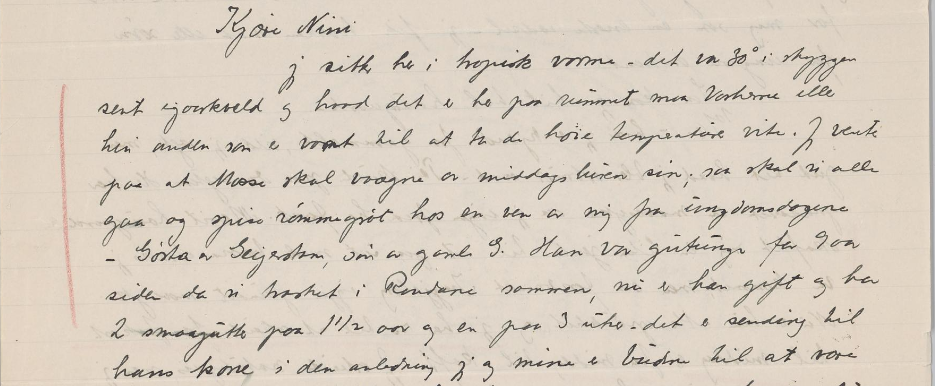 Kjøre Nini
jeg sitter her i tropisk varme - det var 30° i skyggen
sent igaarkveld og hvad det er her paa rummet maa Vorherre eller
hin anden som er vant til at ta de høie temperaturer vite. Jeg venter
paa at Mosse skal vaagne av middagsluren sin; saa skal vi alle
gaa og spise rømmegrøt hos en ven av mig fra ungdomsdagene
- Gösta av Geijerstam, søn av gamle G. Han var guttunge for 9 aar
siden da vi trasket i Rondane sammen, nu er han gift og har
2 smaagutter paa 1 1/2 aar og en paa 3 uker - det er sending til
hans kone i den anledning jeg og mine er budne til at være